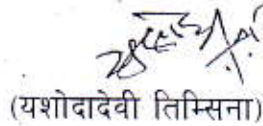 (यशोदादेवी तिम्सिना)